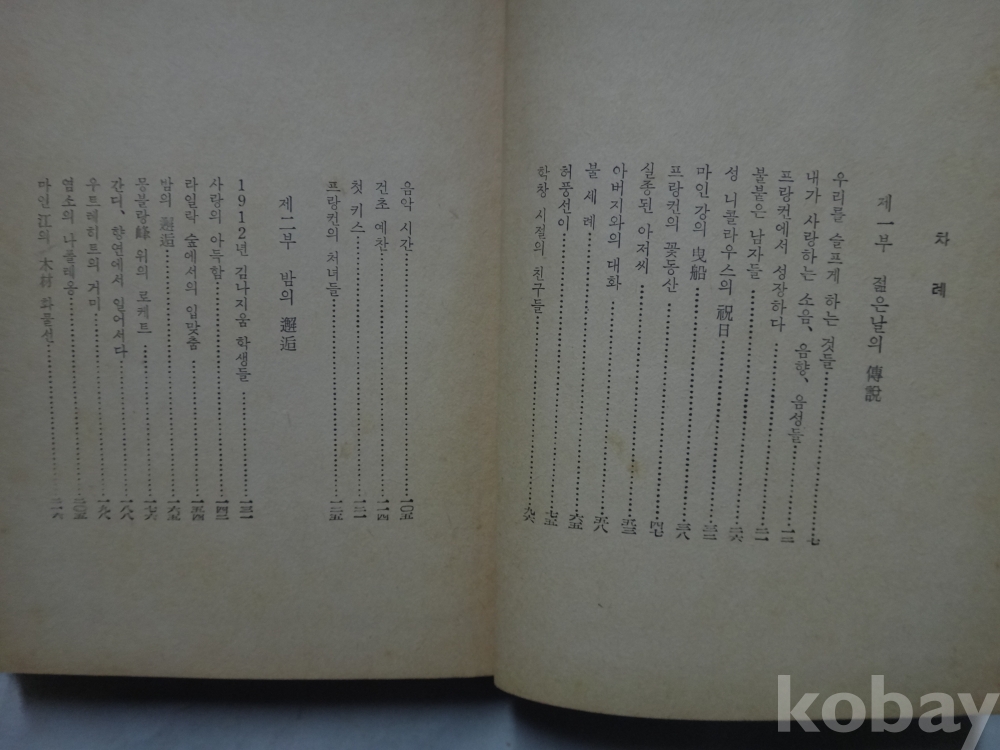 차 례
제一부 젊은날의 傳說
우리를 슬프게 하는 것들……七
내가 사랑하는 소음、음향、음성들……一二
프랑켄에서 성장하다……二一
불붙은 남자들……二六
성 니콜라우스의 祝日……三二
마인 강의 曳船……三八
프랑켄의 꽃동산……四七
실종된 아저씨……五三
아버지와의 대화……五八
불 세 례……六五
허풍선이……七五
학창 시절의 친구들……九六
음악 시간……一〇五
건초 예찬……一一四
첫 키스……一二一
프랑켄의 처녀들……一二五
제二부 밤의 邂逅
1912년 김나지움 학생들……一三一
사랑의 아득함……一四三
라일락 숲에서의 입맞춤……一五四
밤의 邂逅……一六五
몽블랑峰 위의 로케트……一七六
간디、향연에서 일어서다……一八八
우트레히트의 거미……一九六
염소의 나폴레옹……二〇五
마인 江의 木材 화물선……二一六
kobay